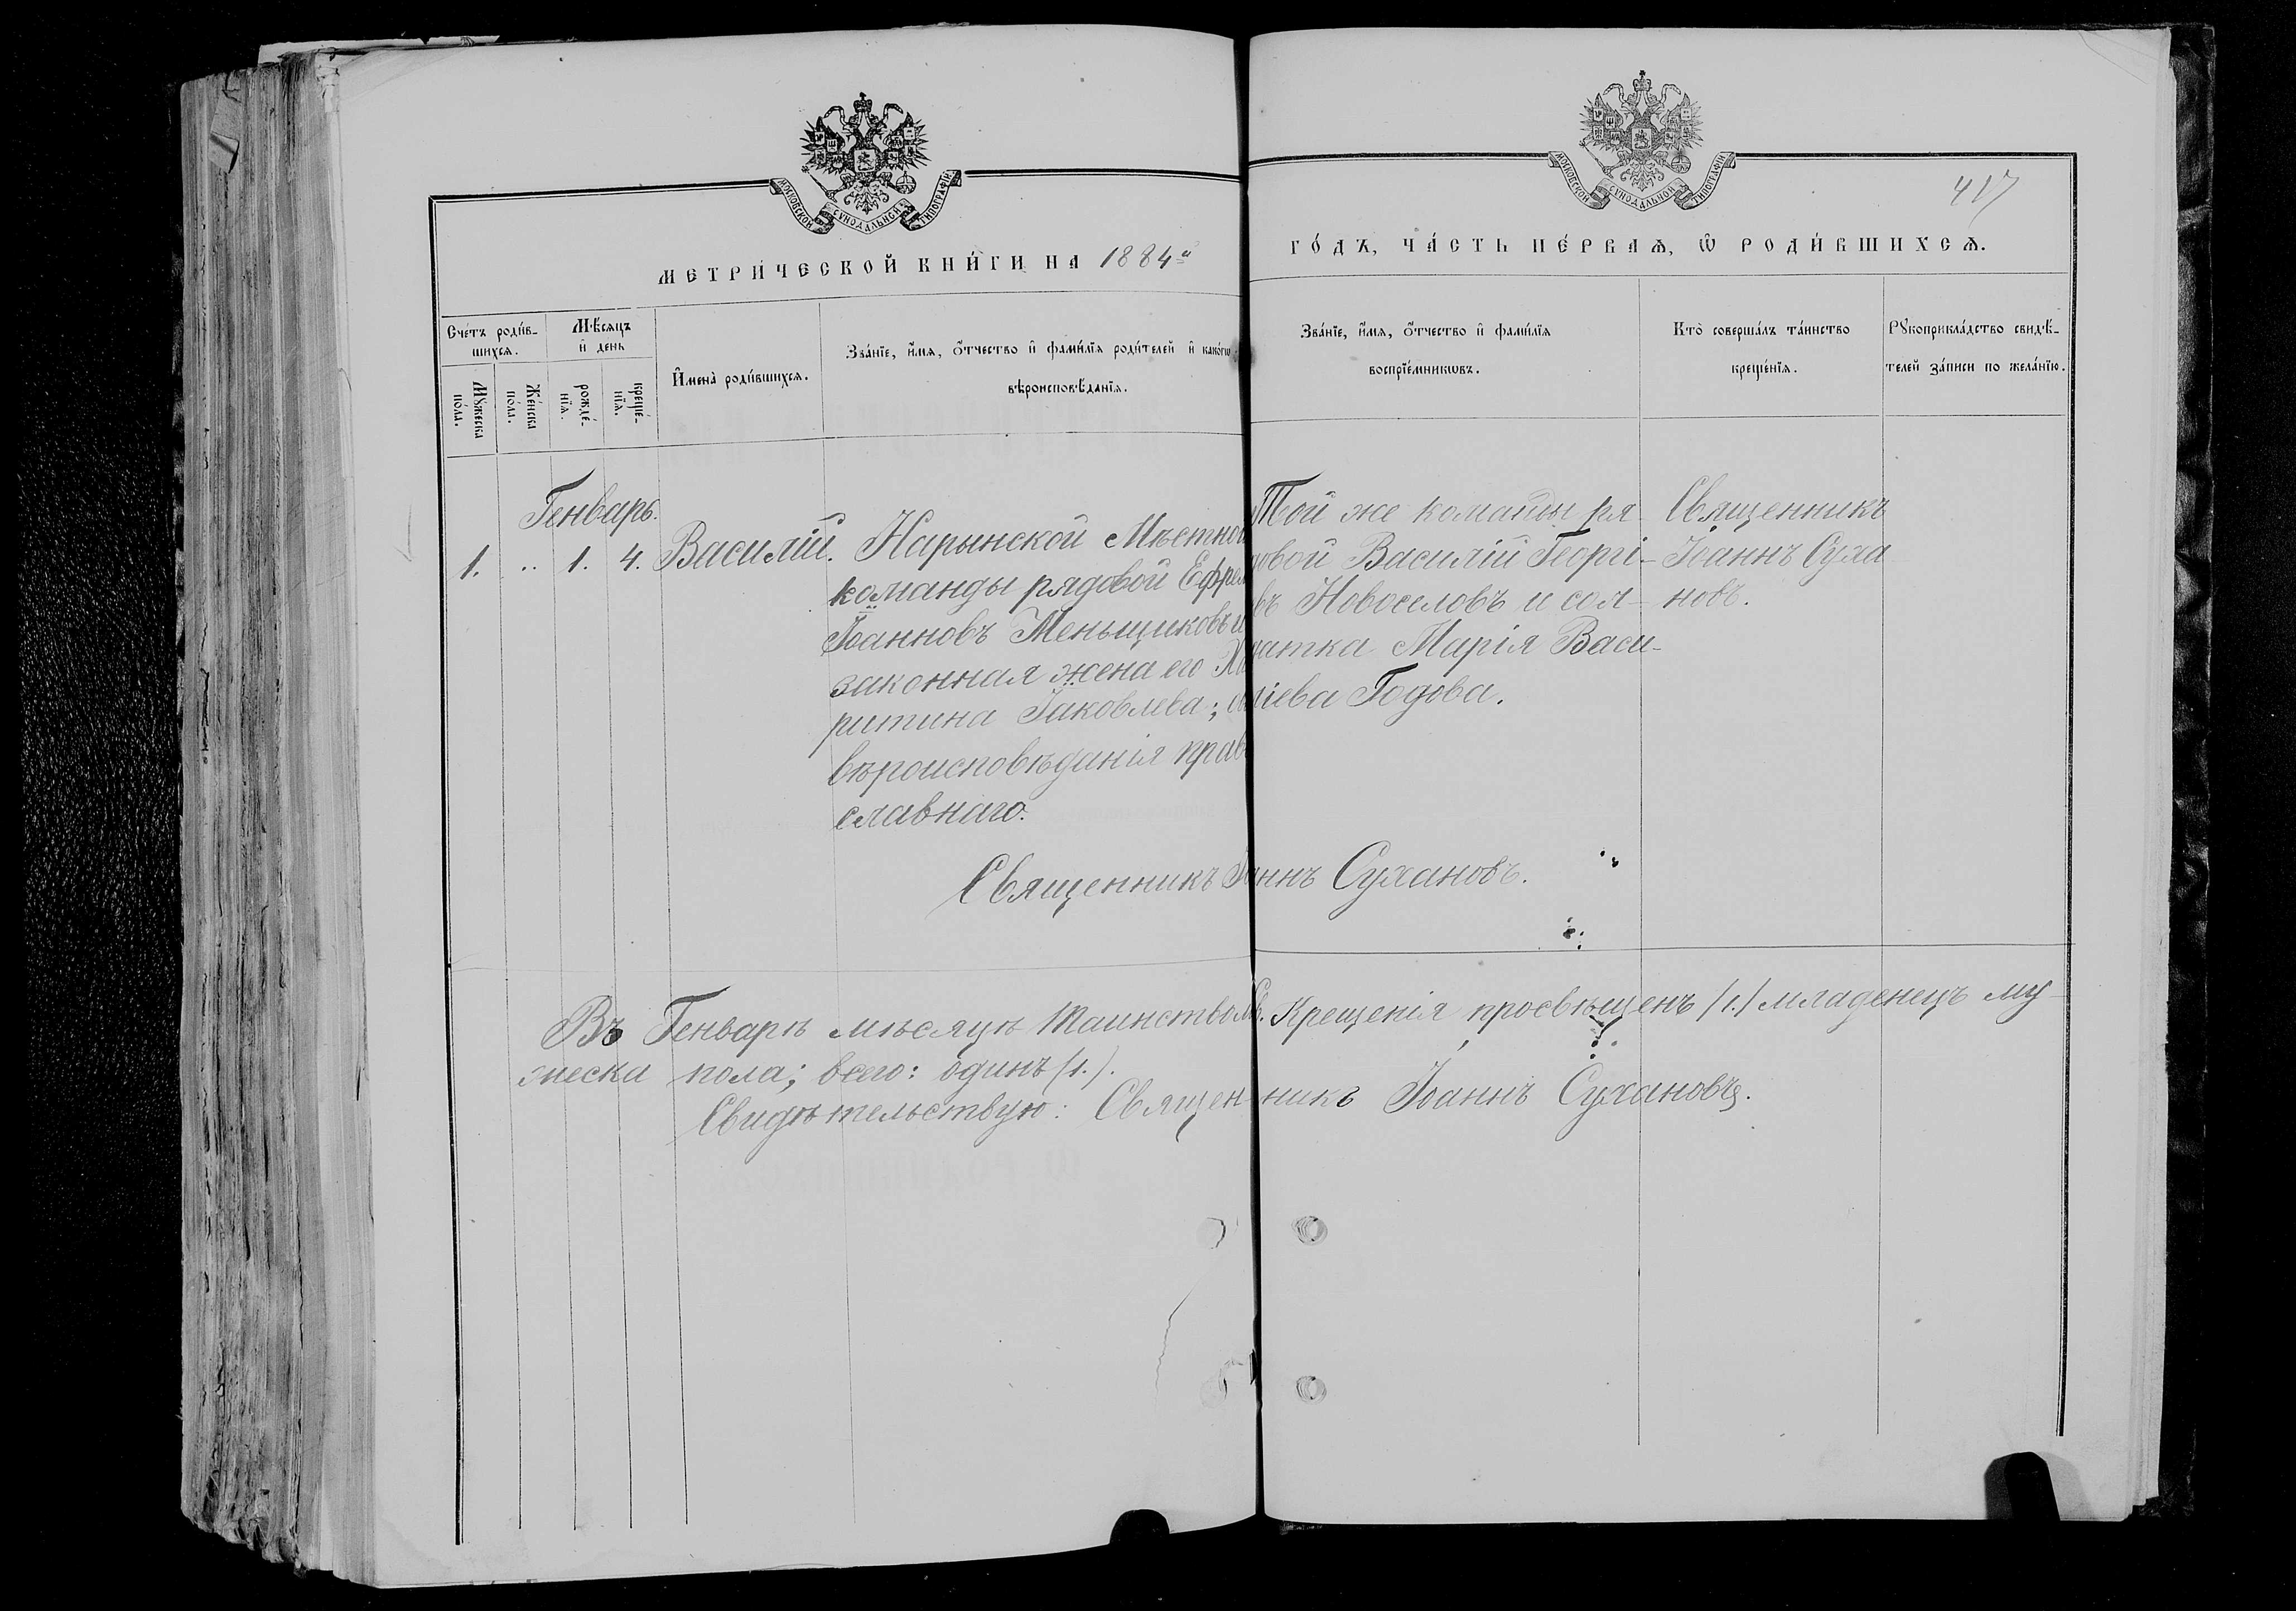 МОСКОВСКОЙ СУНОДАЛЬНОЙ ТИПОГРАФІИ
МОСКОВСКОЙ СУНОДАЛЬНОЙ ТИПОГРАФІИ
417
МЕТРИ́ЧЕСКОЙ КНИ́ГИ НА 1884й
ГО́ДЪ, ЧА́СТЬ ПЕ́РВАѦ, Ѽ РОДИ́ВШИХСѦ.
Сче́тъ роди́в-
шихсѧ.
Мѣ́сѧцъ
и҆ день
Мꙋ́жеска
по́ла.
Же́нска
по́ла.
рожде́-
нїѧ.
креще́-
нїѧ.
И҆мена̀ роди́вшихсѧ.
Зва́нїе, и҆́мѧ, ѻ҆́тчество и҆ фами́лїѧ роди́телей и҆ како́гѡ
вѣроисповѣ́данїѧ.
Зва́нїе, и҆́мѧ, ѻ҆́тчество и҆ фами́лїѧ
воспрїе́мникѡвъ.
Кто̀ соверша́лъ та́инство
креще́нїѧ.
Рꙋкоприкла́дство свидѣ́-
телей за́писи по жела́нїю.
Генварь.
1. „ 1. 4. Василій.
Нарынской Мѣстной
команды рядовой Ефрем
Іоанновъ Меньщиковъ и
законная жена его Ха
ритина Іаковлева;
вѣроисповѣданія право
славнаго.
Той же команды ря-
довой Василій Георгі-
въ Новоселовъ и сол-
датка Марія Васи-
ліева Годова.
Священникъ
Іоаннъ Суха
новъ.
Священникъ Іоаннъ Сухановъ.
Въ Генварѣ мѣсяцѣ таинствомъ Св. Крещенія просвѣщенъ (1.) младенецъ му-
жеска пола; всего: одинъ (1.).
Свидѣтельствую: Священникъ Іоаннъ Сухановъ.